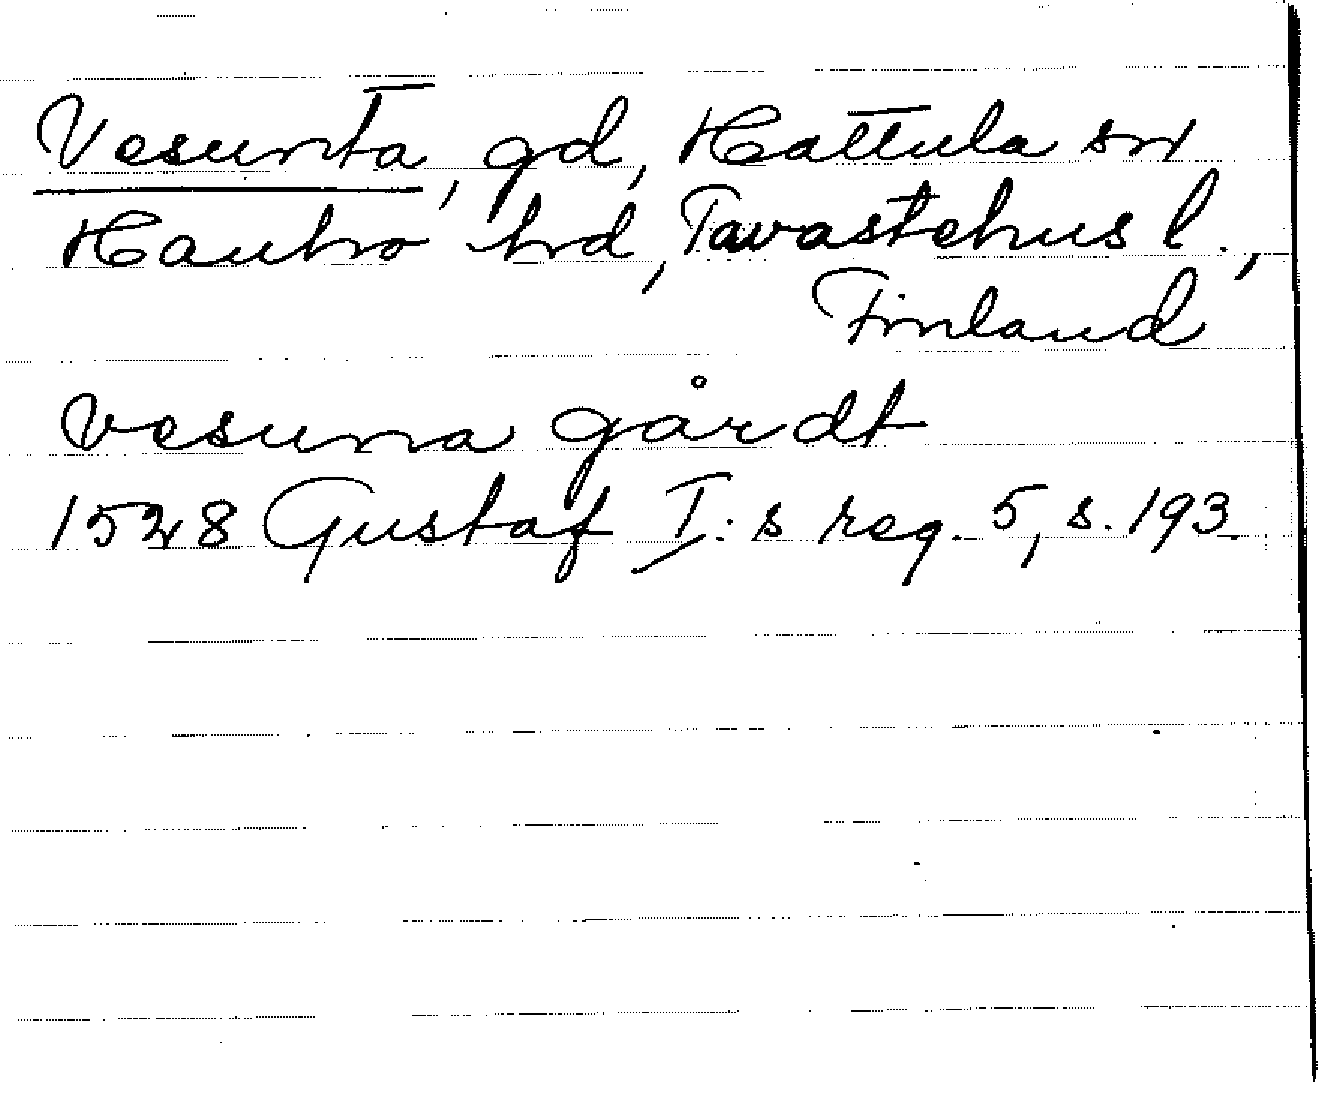 Vesunta, gd, Hattula sn
Hauho hrd, Tavastehus l.,
Finland
Vesuna gårdt
1528 Gustaf I:s reg. 5, s. 193.